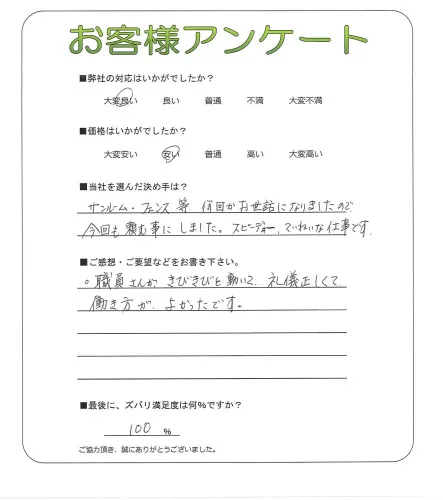 お客様アンケート
■弊社の対応はいかがでしたか？
大変良い 良い 普通 不満 大変不満
■価格はいかがでしたか？
大変安い 安い 普通 高い 大変高い
■当社を選んだ決め手は？
サンルーム・フェンス等 何回かお世話になりましたので
今回も頼む事にしました。スピーディー、ていねいな仕事です。
■ご感想・ご要望などをお書き下さい。
。職員さんが きびきびと動いて、礼儀正しくて
働き方が、よかったです。
■最後に、ズバリ満足度は何％ですか？
100 %
ご協力頂き、誠にありがとうございました。